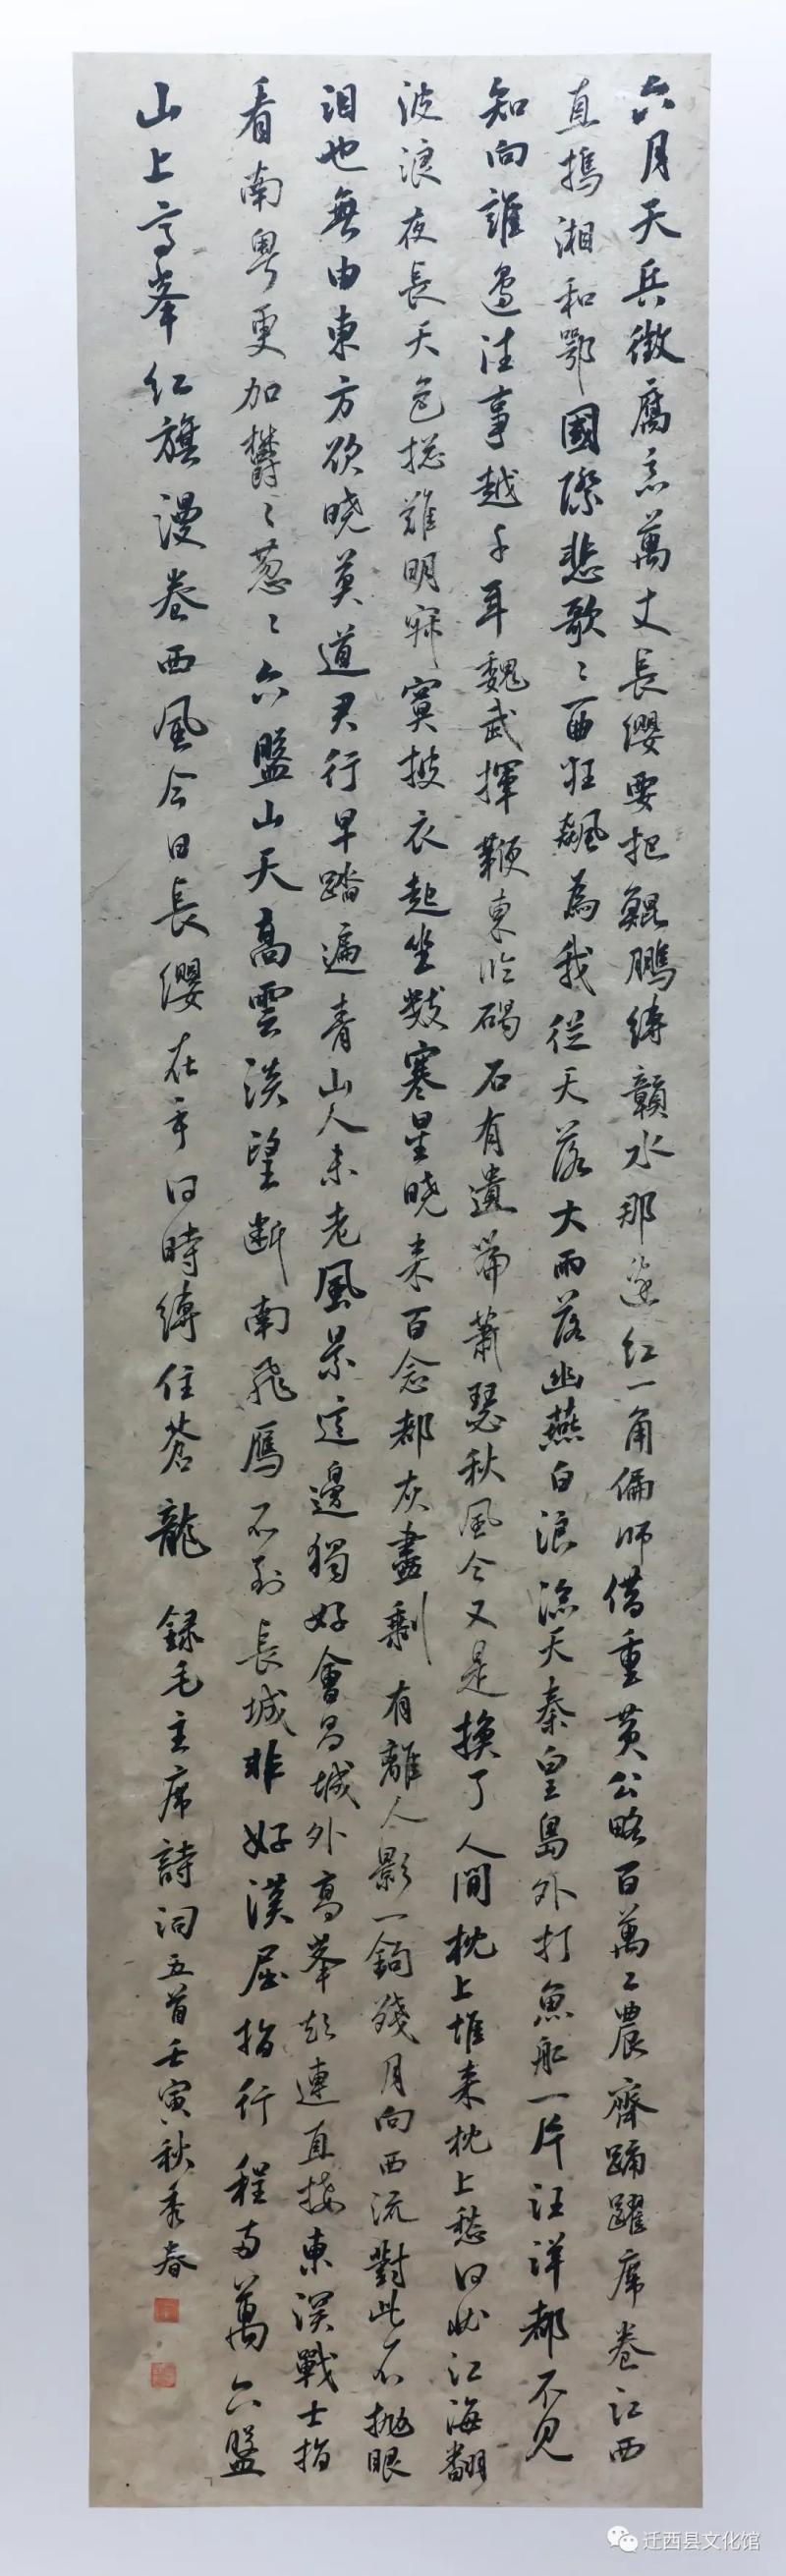 六月天兵徵腐惡萬丈長纓要把鯤鵬縛贛水那邊紅一角偏師借重黄公略百萬工農齊踴躍席卷江西
直搗湘和鄂國際悲歌歌一曲狂飆為我從天落大雨落幽燕白浪滔天秦皇島外打魚船一片汪洋都不見
知向誰邊往事越千年魏武揮鞭東臨碣石有遺篇蕭瑟秋風今又是換了人間枕上堆来枕上愁何狀江海翻
波浪夜長天色捴難明寂寞披衣起坐數寒星曉来百念都灰盡剩有離人影一鉤殘月向西流對此不抛眼
泪也無由東方欲曉莫道君行早踏遍青山人未老風景這邊獨好會昌城外高峯顛連直接東溟戰士指
看南粵更加欝〻葱〻六盤山天高雲淡望斷南飛雁不到長城非好漢屈指行程二萬六盤
山上高峯紅旗漫卷西風今日長纓在手何時縛住蒼龍 録毛主席詩词五首壬寅秋秀春
迁西县文化馆